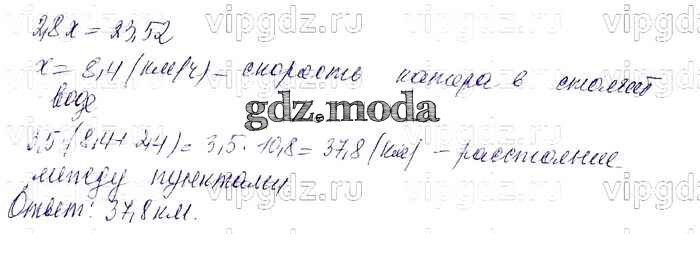 vipgdz.ru vipgdz.ru vipgdz.ru
2,8x = 23,52
x = 8,4 (км/ч) – скорость катера в стоячей
воде
gdz.moda
3,5 · (8,4 + 2,4) = 3,5 · 10,8 = 37,8 (км) – расстояние
между пунктами
vipgdz.ru vipgdz.ru vipgdz.ru
Ответ: 37,8 км.